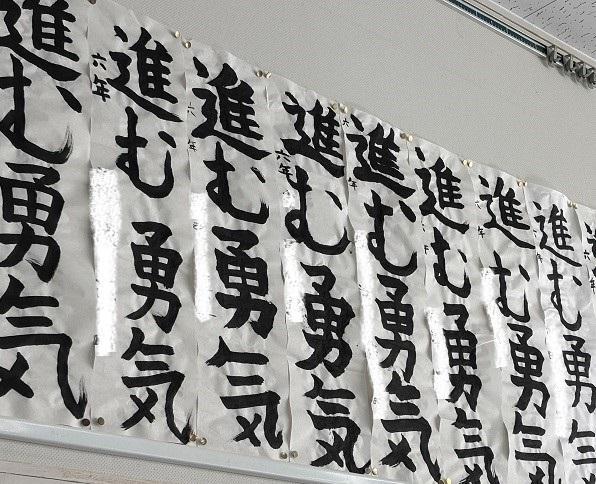 進む勇気
進む勇気
六年
進む勇気
六年
進む勇気
六年
進む勇気
六年
進む勇気
進む勇気
進む勇気
進む勇
六